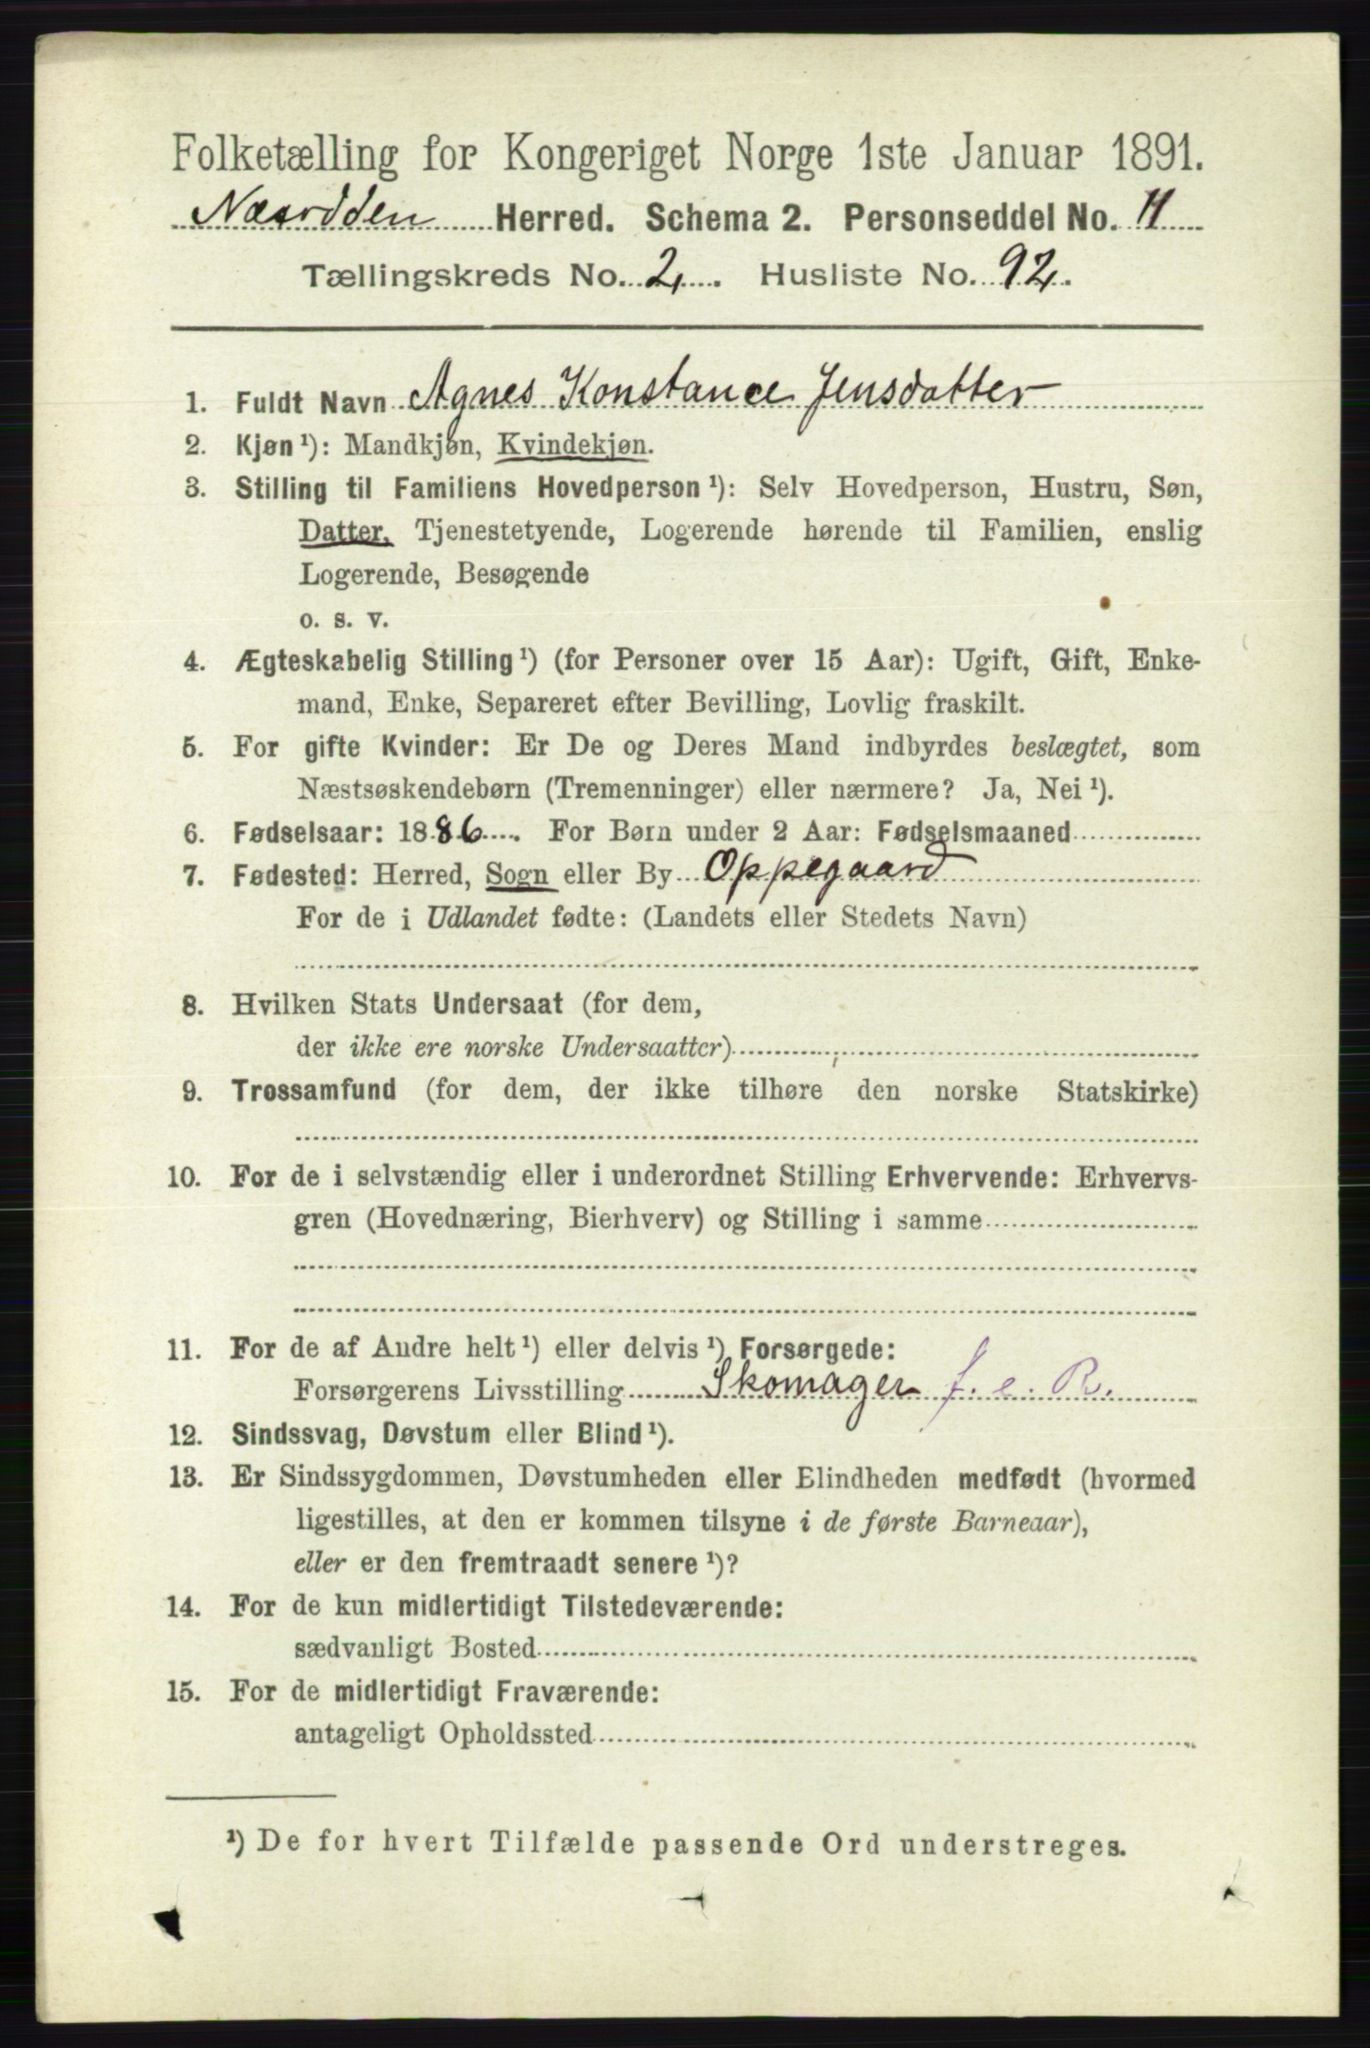 Folketælling for Kongeriget Norge 1ste Januar 1891.
Næsodden Herred. Schema 2. Personseddel No. 11
Tællingskreds No. 2. Husliste No. 92.
1. Fuldt Navn Agnes Konstance Jensdatter
2. Kjøn¹): Mandkjøn, Kvindekjøn.
3. Stilling til Familiens Hovedperson¹): Selv Hovedperson, Hustru, Søn,
Datter, Tjenestetyende, Logerende hørende til Familien, enslig
Logerende, Besøgende
o. s. v.
4. Ægteskabelig Stilling¹) (for Personer over 15 Aar): Ugift, Gift, Enke-
mand, Enke, Separeret efter Bevilling, Lovlig fraskilt.
5. For gifte Kvinder: Er De og Deres Mand indbyrdes beslægtet, som
Næstsøskendebørn (Tremenninger) eller nærmere? Ja, Nei¹).
6. Fødselsaar: 1886. For Børn under 2 Aar: Fødselsmaaned
7. Fødested: Herred, Sogn eller By Oppegaard
For de i Udlandet fødte: (Landets eller Stedets Navn)
8. Hvilken Stats Undersaat (for dem,
der ikke ere norske Undersaatter)
9. Trossamfund (for dem, der ikke tilhøre den norske Statskirke)
10. For de i selvstændig eller i underordnet Stilling Erhvervende: Erhvervs-
gren (Hovednæring, Bierhverv) og Stilling i samme
11. For de af Andre helt¹) eller delvis¹) Forsørgede:
Forsørgerens Livsstilling Skomager f. e. R.
12. Sindssvag, Døvstum eller Blind¹).
13. Er Sindssygdommen, Døvstumheden eller Blindheden medfødt (hvormed
ligestilles, at den er kommen tilsyne i de første Barneaar),
eller er den fremtraadt senere¹)?
14. For de kun midlertidigt Tilstedeværende:
sædvanligt Bosted
15. For de midlertidigt Fraværende:
antageligt Opholdssted
¹) De for hvert Tilfælde passende Ord understreges.